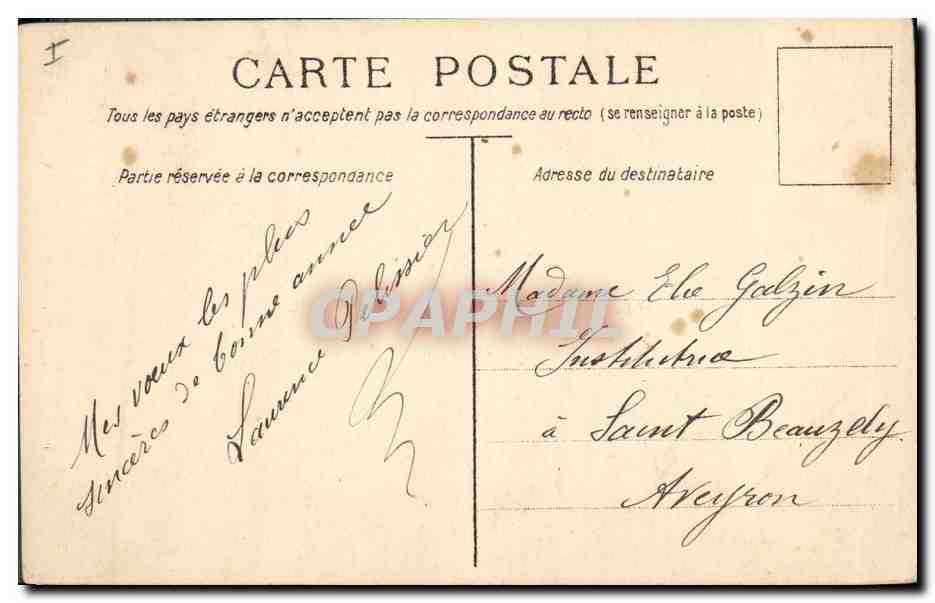 I
CARTE POSTALE
Tous les pays étrangers n'acceptent pas la correspondance au recto (se renseigner à la poste)
Partie réservée à la correspondance
Mes vœux les plus
sincères de bonne année
Laurence Pelissier
Adresse du destinataire
Madame Elie Galzin
Institutrice
à Saint Beauzely
Aveyron
CPAPHIL